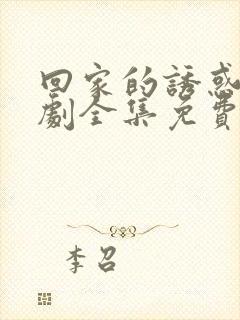 回家的誘惑
劇全集免費
李召